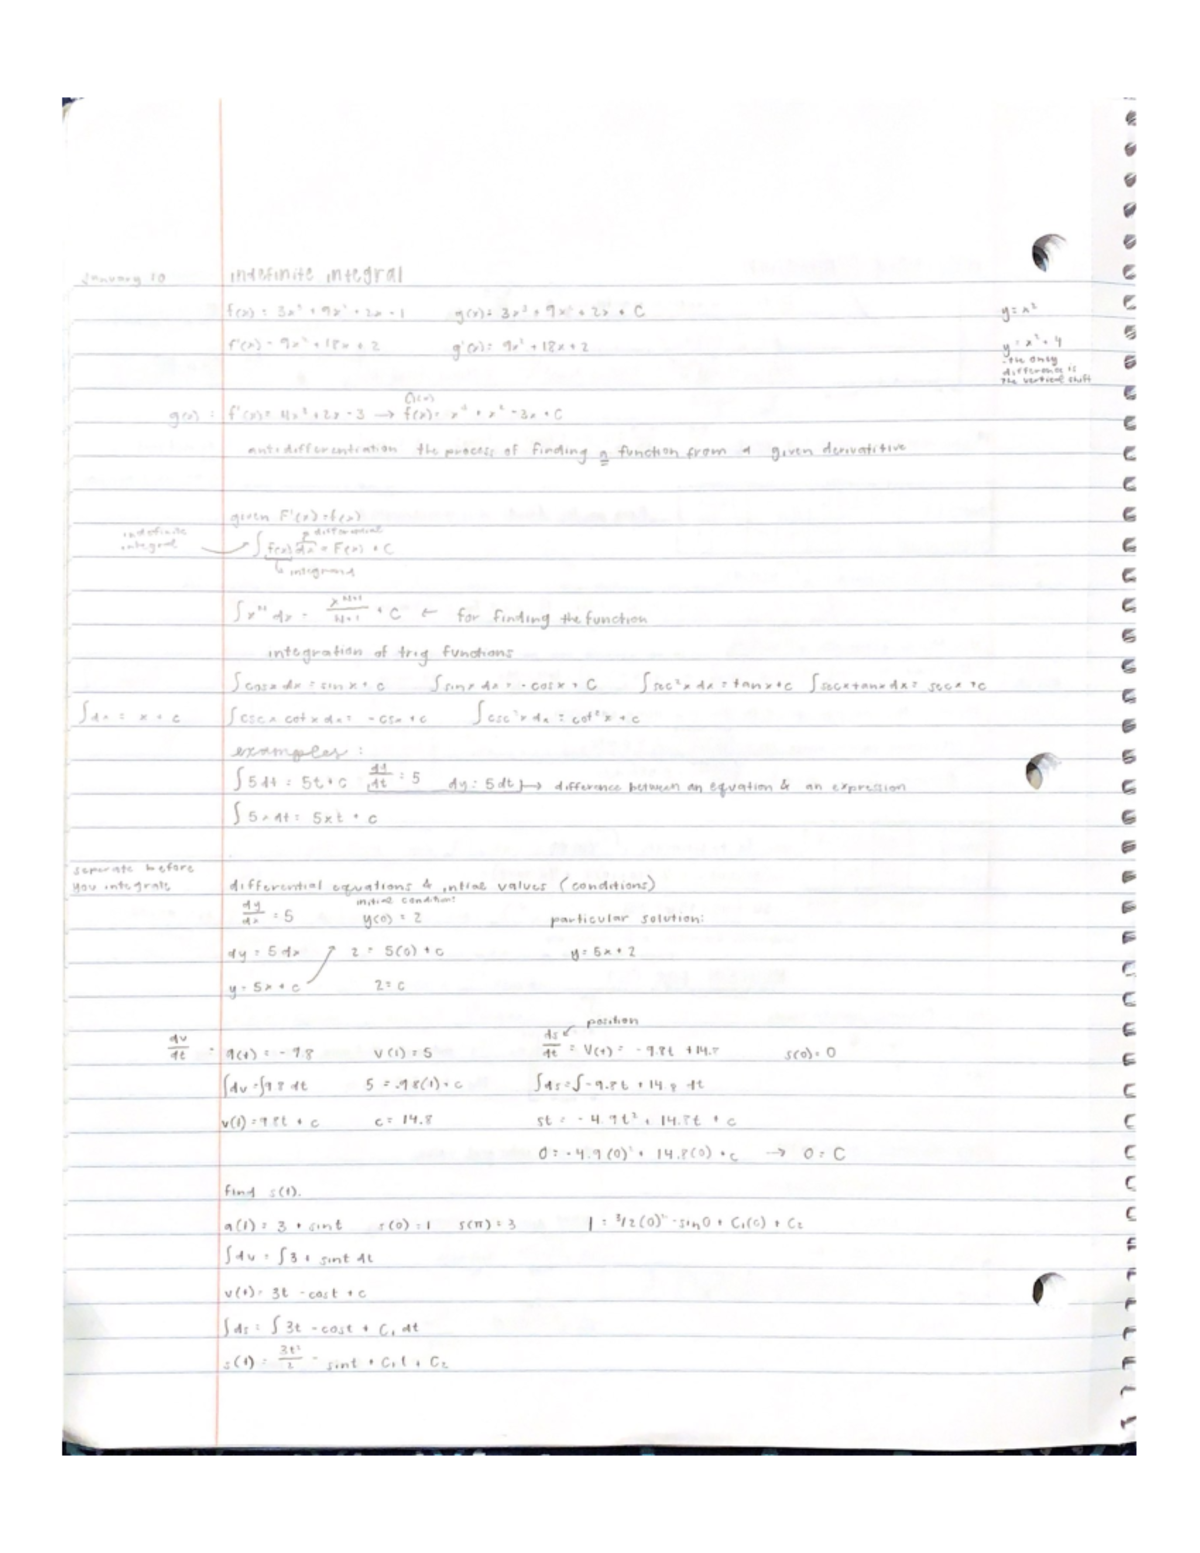 January 10 indefinite integral
f(x) = 3x³ + 9x² + 2x - 1 g(x) = 3x³ + 9x² + 2x + C y = x²
f'(x) = 9x² + 18x + 2 g'(x) = 9x² + 18x + 2 y = x² + 4
- the only
difference is
the vertical shift
g(x) = f'(x) = 4x³ + 2x - 3 → f(x) = x⁴ + x² - 3x + C
antidifferentiation the process of finding a function from a given derivatitive
given F'(x) = f(x)
differential
indefinite
integral ∫ f(x) dx = F(x) + C
↳ integrand
∫ xⁿ dx = xⁿ⁺¹/n+1 + C ← for finding the function
integration of trig functions
∫ cosx dx = sinx + c ∫ sinx dx = - cosx + C ∫ sec²x dx = tanx + c ∫ secxtanx dx = secx + c
∫ dx = x + c ∫ cscx cotx dx = - csx + c ∫ csc²x dx = cot²x + c
examples :
∫ 5dt = 5t + C dy/dt = 5 dy = 5dt → difference between an equation & an expression
∫ 5x dt = 5xt + c
separate before
you integrate differential equations & intial values (conditions)
initial condition:
dy/dx = 5 y(0) = 2 particular solution:
dy = 5dx 2 = 5(0) + c y = 5x + 2
y = 5x + c 2 = c
position
dv/dt = a(t) = - 9.8 v(1) = 5 ds/dt = v(t) = - 9.8t + 14.8 s(0) = 0
∫ dv = ∫ 9.8 dt 5 = -9.8(1) + c ∫ ds = ∫ -9.8t + 14.8 dt
v(t) = 9.8t + c c = 14.8 st = - 4.9t² + 14.8t + c
0 = - 4.9(0)² + 14.8(0) + c → 0 = C
find s(t).
a(t) = 3 + sint s(0) = 1 s(π) = 3 1 = 3/2(0)² - sin0 + C₁(0) + C₂
∫ dv = ∫ 3 + sint dt
v(t) = 3t - cost + c
∫ ds = ∫ 3t - cost + C₁ dt
s(t) = 3t²/2 - sint + C₁t + C₂